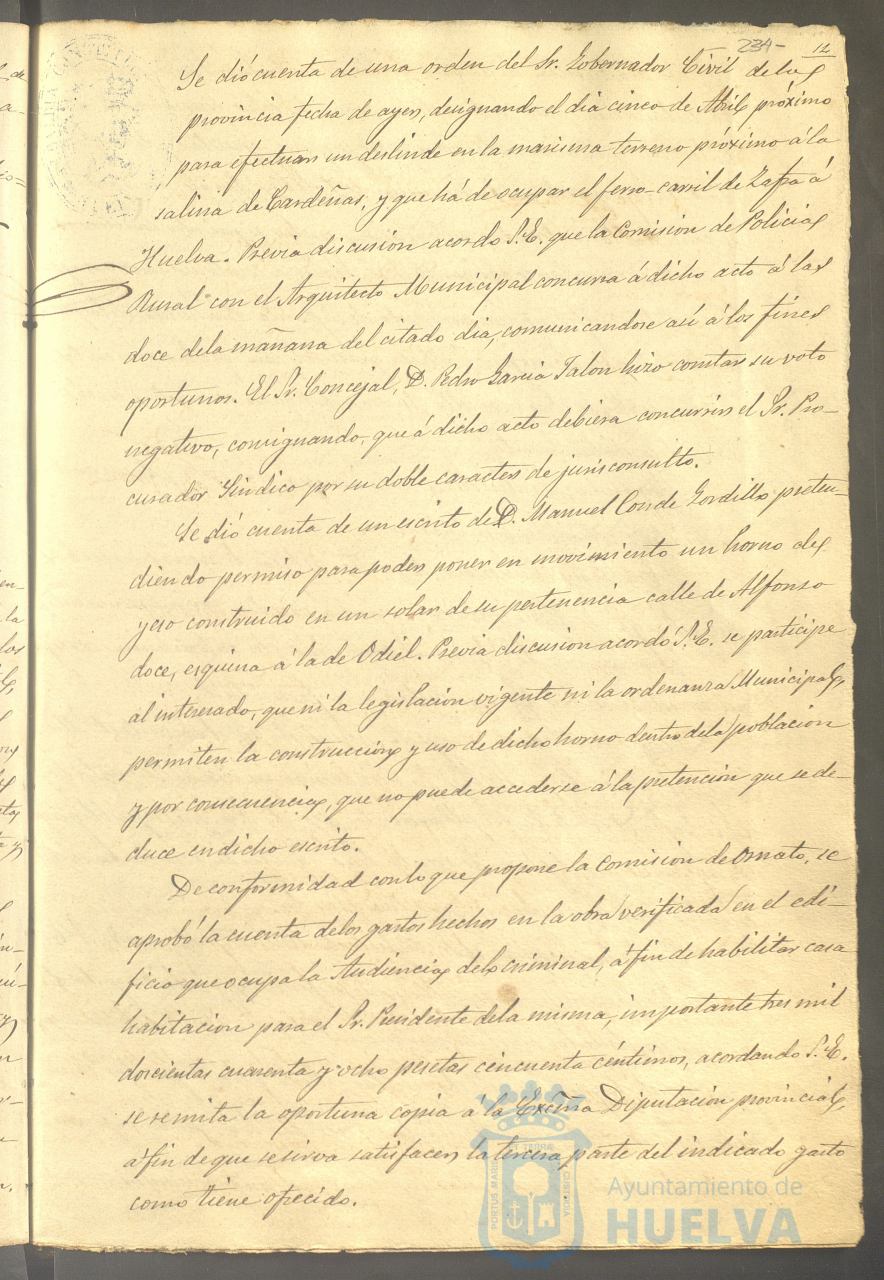 234-
12
Se dió cuenta de una orden del Sr. Gobernador Civil de la
provincia fecha de ayer, designando el dia cinco de Abril próximo
para efectuar un deslinde en la marisma terreno próximo á la
salina de Cardeñas, y que há de ocupar el ferro-carril de Zafra á
Huelva. Previa discusión acordo S.E. que la Comisión de Policia
Rural con el Arquitecto Municipal concurra á dicho acto á las
doce de la mañana del citado dia, comunicandose así á los fines
oportunos. El Sr. Concejal, D. Pedro Garcia Jalon hizo constar su voto
negativo, consignando, que á dicho acto debiera concurrir el Sr. Pro-
curador Sindico por su doble caracter de jurisconsulto.
Se dió cuenta de un escrito de D. Manuel Conde Gordillo preten-
diendo permiso para poder poner en movimiento un horno de
yeso construido en un solar de su pertenencia calle de Alfonso
doce, esquina á la de Odiel. Previa discusion acordó S.E. se participe
al interesado, que ni la legislación vigente ni la ordenanza Municipal,
permiten la construccion y uso de dicho horno dentro de la poblacion
y por consecuencia, que no puede accederse á la pretención que se de-
duce en dicho escrito.
De conformidad con lo que propone la Comisión de Ornato, se
aprobó la cuenta de los gastos hechos en la obra verificada en el edi-
ficio que ocupa la Audiencia de lo criminal, á fin de habilitar casa
habitacion para el Sr. Presidente de la misma, importante tres mil
doscientas cuarenta y ocho pesetas cincuenta céntimos, acordando S.E.
se remita la oportuna copia á la Excma Diputación provincial,
á fin de que se sirva satisfacer la tercera parte del indicado gasto
como tiene ofrecido.
PORTUS MARIS
ET TERRAE
CUSTODIA
Ayuntamiento de
HUELVA